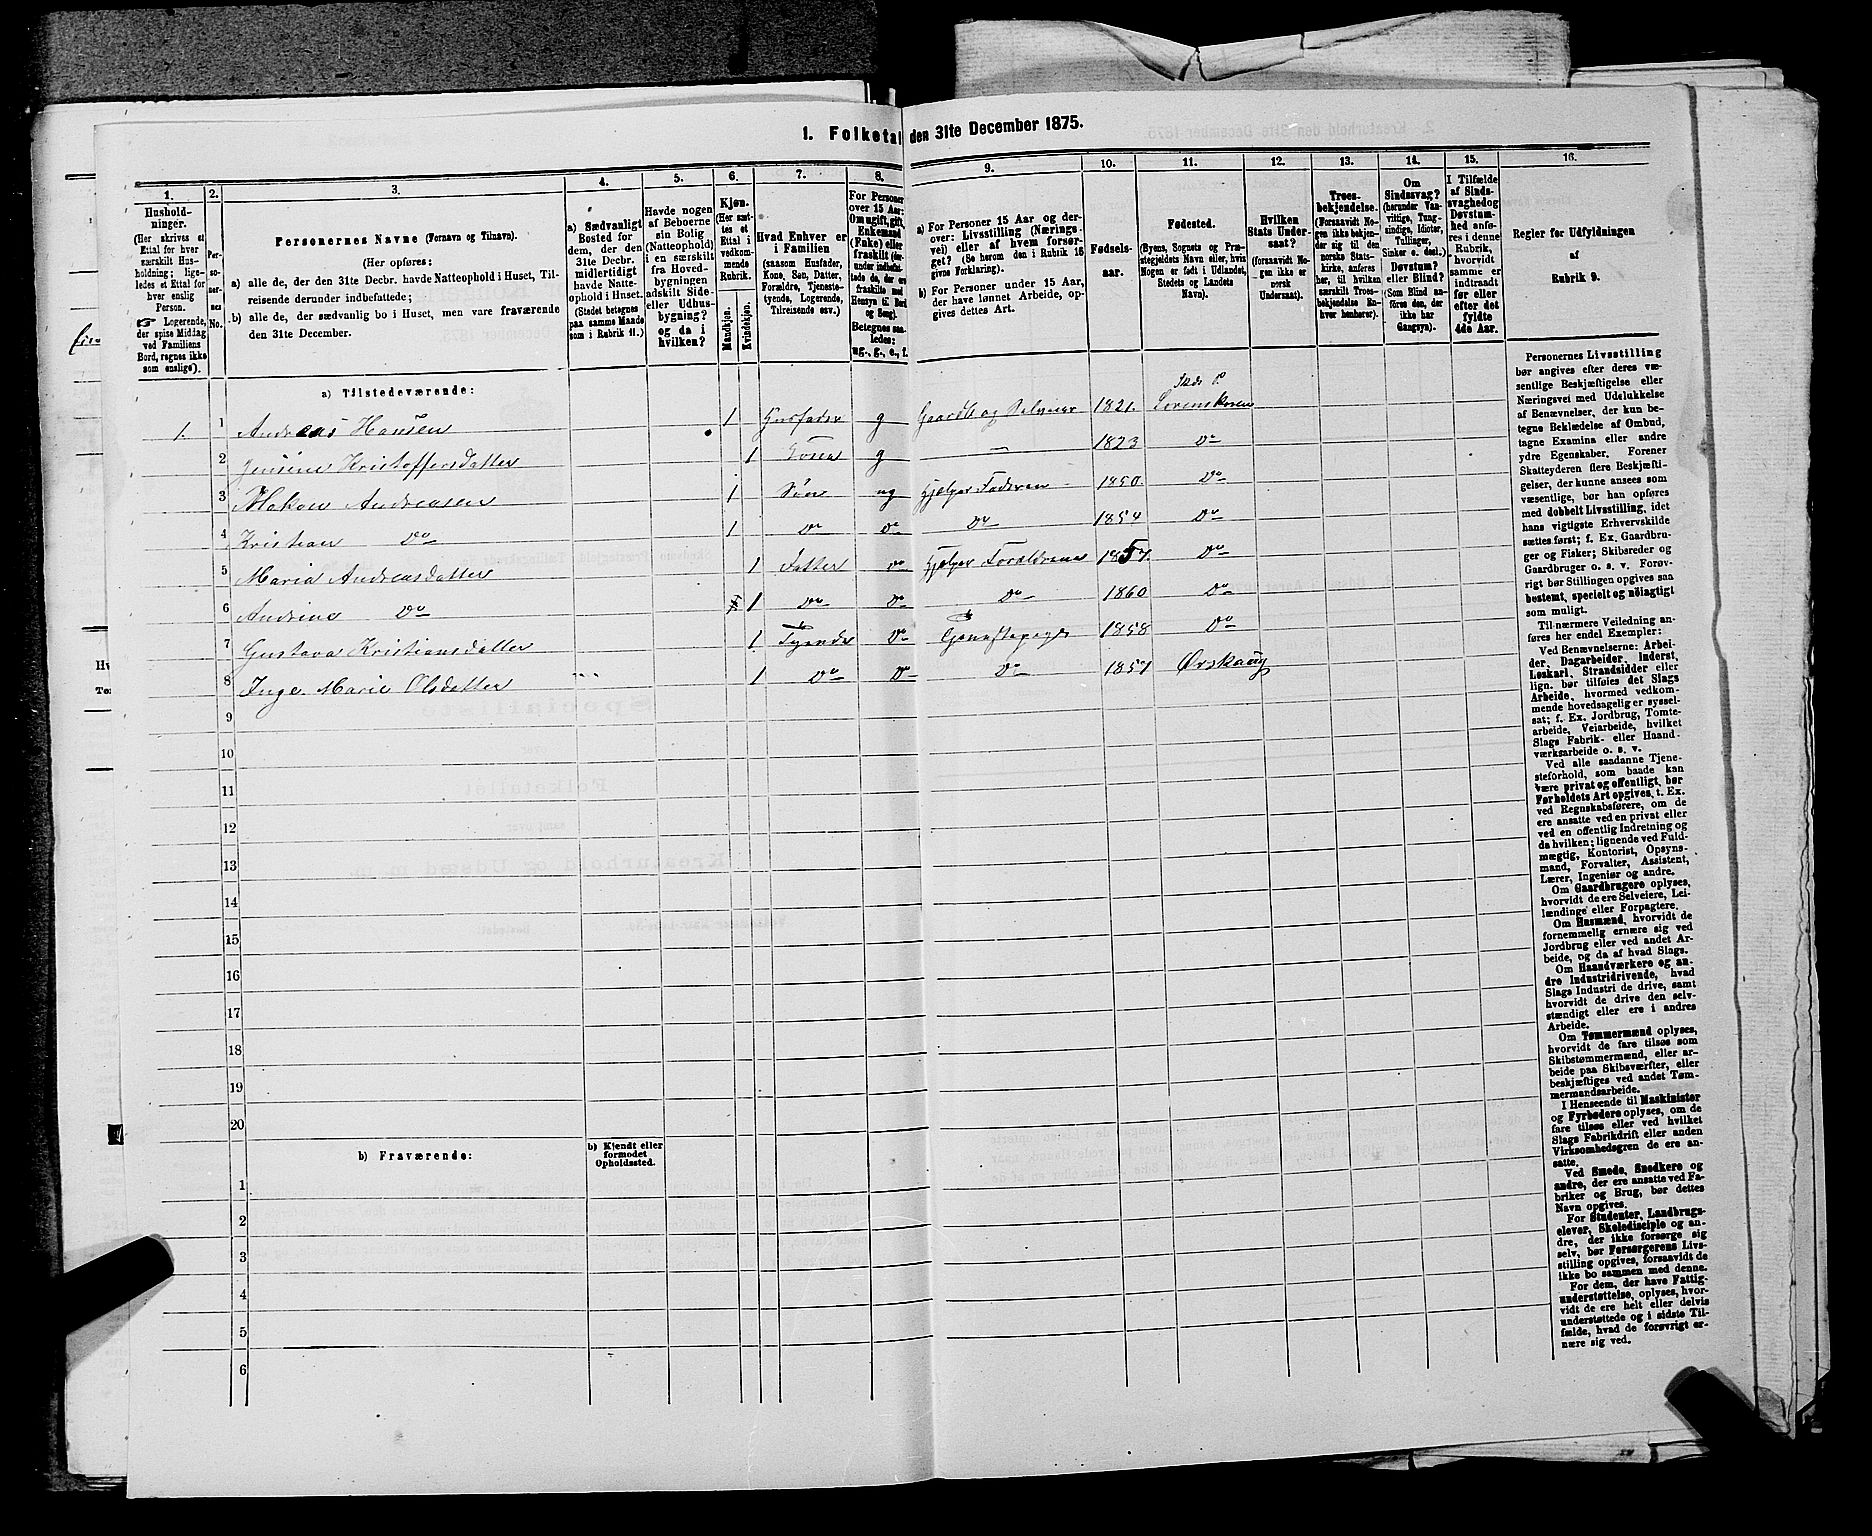 1. Folketal den 31te December 1875.
1. 2. 3. 4. 5. 6. 7. 8. 9. 10. 11. 12. 13. 14. 15. 16.
Hushold-
ninger.
(Her skrives et
Ettal for hver
særskilt Hus-
holdning; lige-
ledes et Ettal for
hver enslig
Person.
☞ Logerende,
der spise Middag
ved Familiens
Bord, regnes ikke
som enslige).
Per-
so-
ner-
nes
No.
Personernes Navne (Fornavn og Tilnavn).
(Her opføres:
a) alle de, der den 31te Decbr. havde Natteophold i Huset, Til-
reisende derunder indbefattede;
b) alle de, der sædvanlig bo i Huset, men vare fraværende
den 31te December.
a) Sædvanligt
Bosted for
dem, der den
31te Decbr.
midlertidigt
havde Natte-
ophold i Huset.
(Stedet betegnes
paa samme Maade
som i Rubrik 11.)
Havde nogen
af Beboerne
sin Bolig
(Natteophold)
i en særskilt
fra Hoved-
bygningen
adskilt Side-
eller Udhus-
bygning?
og da i
hvilken?
Kjøn.
(Her sæt-
tes et
Ettal i
vedkom-
mende
Rubrik.
Mandkjøn.
Kvindekjøn.
Hvad Enhver er
i Familien
(saasom Husfader,
Kone, Søn, Datter,
Forældre, Tjeneste-
tyende, Logerende,
Tilreisende osv.)
For Personer
over 15 Aar:
Om ugift, gift,
Enkemand
(Enke) eller
fraskilt (der-
under indbefat-
tede de, der ere
fraskilte med
Hensyn til Bord
og Seng).
Betegnes saa-
ledes:
ug., g., e., f.
a) For Personer 15 Aar og der-
over: Livsstilling (Nærings-
vei) eller af hvem forsør-
get? (Se herom den i Rubrik 16
givne Forklaring).
b) For Personer under 15 Aar,
der have lønnet Arbeide, op-
gives dettes Art.
Fødsels-
aar.
Fødested.
(Byens, Sognets og Præ-
stegjeldets Navn eller, hvis
Nogen er født i Udlandet,
Stedets og Landets
Navn).
Hvilken
Stats Under-
saat?
(forsaavidt No-
gen ikke er
norsk
Undersaat).
Troes-
bekjendelse.
(Forsaavidt No-
gen ikke bekjen-
der sig til den
norske Stats-
kirke, anføres
her, til hvilken
særskilt Troes-
bekjendelse En-
hver henhører).
Om
Sindssvag?
(herunder Van-
vittige, Tung-
sindige, Idioter,
Tullinger,
Sinker o. desl.)
Døvstum?
eller Blind?
(Som Blind an-
føres den, der
ikke har
Gangsyn).
I Tilfælde
af Sinds-
svaghed og
Døvstum-
hed anfø-
res i denne
Rubrik,
hvorvidt
samme er
indtraadt
før eller
efter det
fyldte
4de Aar.
Regler for Udfyldningen
af
Rubrik 9.
a) Tilstedeværende:
1. 1 Andreas Hansen 1 Husfader g Gaardb. og Selveier 1821. Lørenskoven
2 Jensine Kristoffersdatter 1 Kone g — 1823 Do
3 Hakon Andreasen 1 Søn ug hjælper Faderen 1850 Do
4 Kristian Do 1 Do Do Do 1854 Do
5 Maria Andreasdatter 1 Datter Do hjælper Forældrene 1857. Do
6 Andrine Do 1 Do Do Do 1860 Do
7 Gustava Kristiansdatter 1 Tyende Do 1858 Do
8 Inge. Marie Olsdatter 1 Do Do Do 1857 Ørskoug
9
10
11
12
13
14
15
16
17
18
19
20
b) Fraværende:
b) Kjendt eller
formodet
Opholdssted.
1
2
3
4
5
6
Personernes Livsstilling
bør angives efter deres væ-
sentlige Beskjæftigelse eller
Næringsvei med Udelukkelse
af Benævnelser, der kun be-
tegne Beklædelse af Ombud,
tagne Examina eller andre
ydre Egenskaber. Forener
Skatteyderen flere Beskjæfti-
gelser, der kunne ansees som
væsentlige, bør han opføres
med dobbelt Livsstilling, idet
hans vigtigste Erhvervskilde
sættes først; f. Ex. Gaardbru-
ger og Fisker; Skibsreder og
Gaardbruger o. s. v. Forøv-
rigt bør Stillingen opgives saa
bestemt, specielt og nöiagtigt
som muligt.
Til nærmere Veiledning an-
føres her endel Exempler:
Ved Benævnelserne: Arbei-
der, Dagarbeider, Inderst,
Løskarl, Strandsidder eller
lign. bør tilføies det Slags
Arbeide, hvormed vedkom-
mende hovedsagelig er syssel-
sat; f. Ex. Jordbrug, Tomte-
arbeide, Veiarbeide, hvilket
Slags Fabrik- eller Haand-
værksarbeide o. s. v.
Ved alle saadanne Tjene-
steforhold, som baade kan
være privat og offentligt, bør
Forholdets Art opgives, t. Ex.
ved Regnskabsførere, om de
ere ansatte ved en privat eller
ved en offentlig Indretning og
da hvilken; lignende ved Fuld-
mægtig, Kontorist, Opsyns-
mand, Forvalter, Assistent,
Lærer, Ingeniør og andre.
Om Gaardbrugere oplyses,
hvorvidt de ere Selveiere, Lei-
lændinge eller Forpagtere.
Om Husmænd, hvorvidt de
fornemmelig ernære sig ved
Jordbrug eller ved andet Ar-
beide, og da af hvad Slags.
Om Haandværkere og an-
dre Industridrivende, hvad
Slags Industri de drive, samt
hvorvidt de drive den selv-
stændigt eller ere i andres
Arbeide.
Om Tømmermænd oplyses,
hvorvidt de fare tilsøs som
Skibstømmermænd, eller ar-
beide paa Skibsværfter, eller
beskjæftiges ved andet Tøm-
mermandsarbeide.
I Henseende til Maskinister
og Fyrbødere oplyses, om de
fare tilsøs eller ved hvilket
Slags Fabrikdrift eller anden
Virksomhedsgren de ere an-
satte.
Ved Smede, Snedkere og
andre, der ere ansatte ved Fa-
briker og Brug, bør dettes
Navn opgives.
For Studenter, Landbrugs-
elever, Skoledisciple og an-
dre, der ikke forsørge sig
selv, bør Forsørgerens Livs-
stilling opgives, forsaavidt de
ikke bo sammen med denne.
For dem, der have Fattig-
understøttelse, oplyses, hvor-
vidt de ere helt eller delvis
understøttede og i sidste Til-
fælde, hvad de forøvrigt er-
nære sig ved.